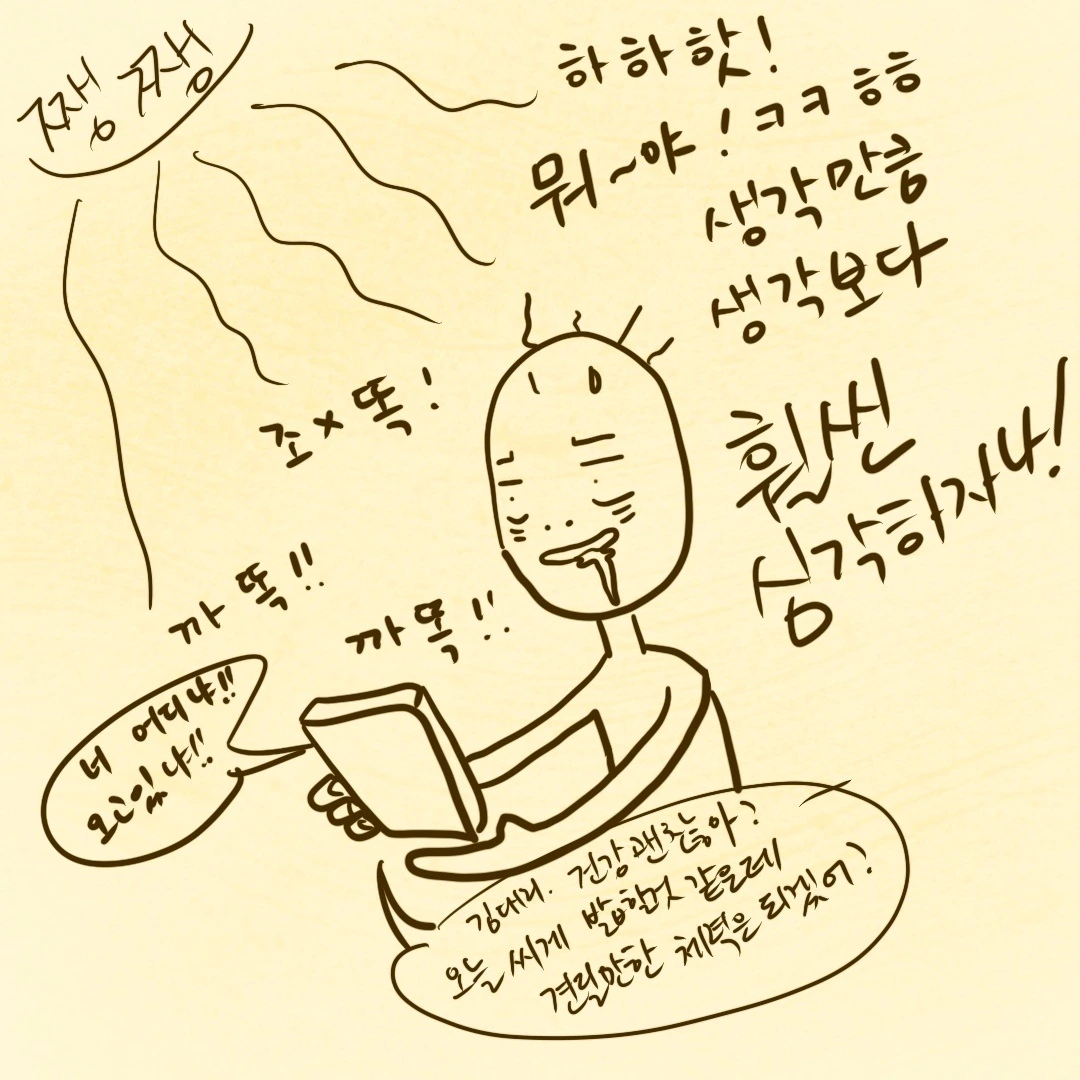 쨍 쨍
하하핫!
뭐~야! ㅋㅋ 흐흐
생각만큼
생각보다
훨씬
심각하자나!
조×똑!
까똑!!
까똑!!
너 어디냐!!
오고있냐!!
김대리. 건강 괜찮아?
오늘 씨게 밟을껏 같은데
견딜만한 체력은 되겠어?